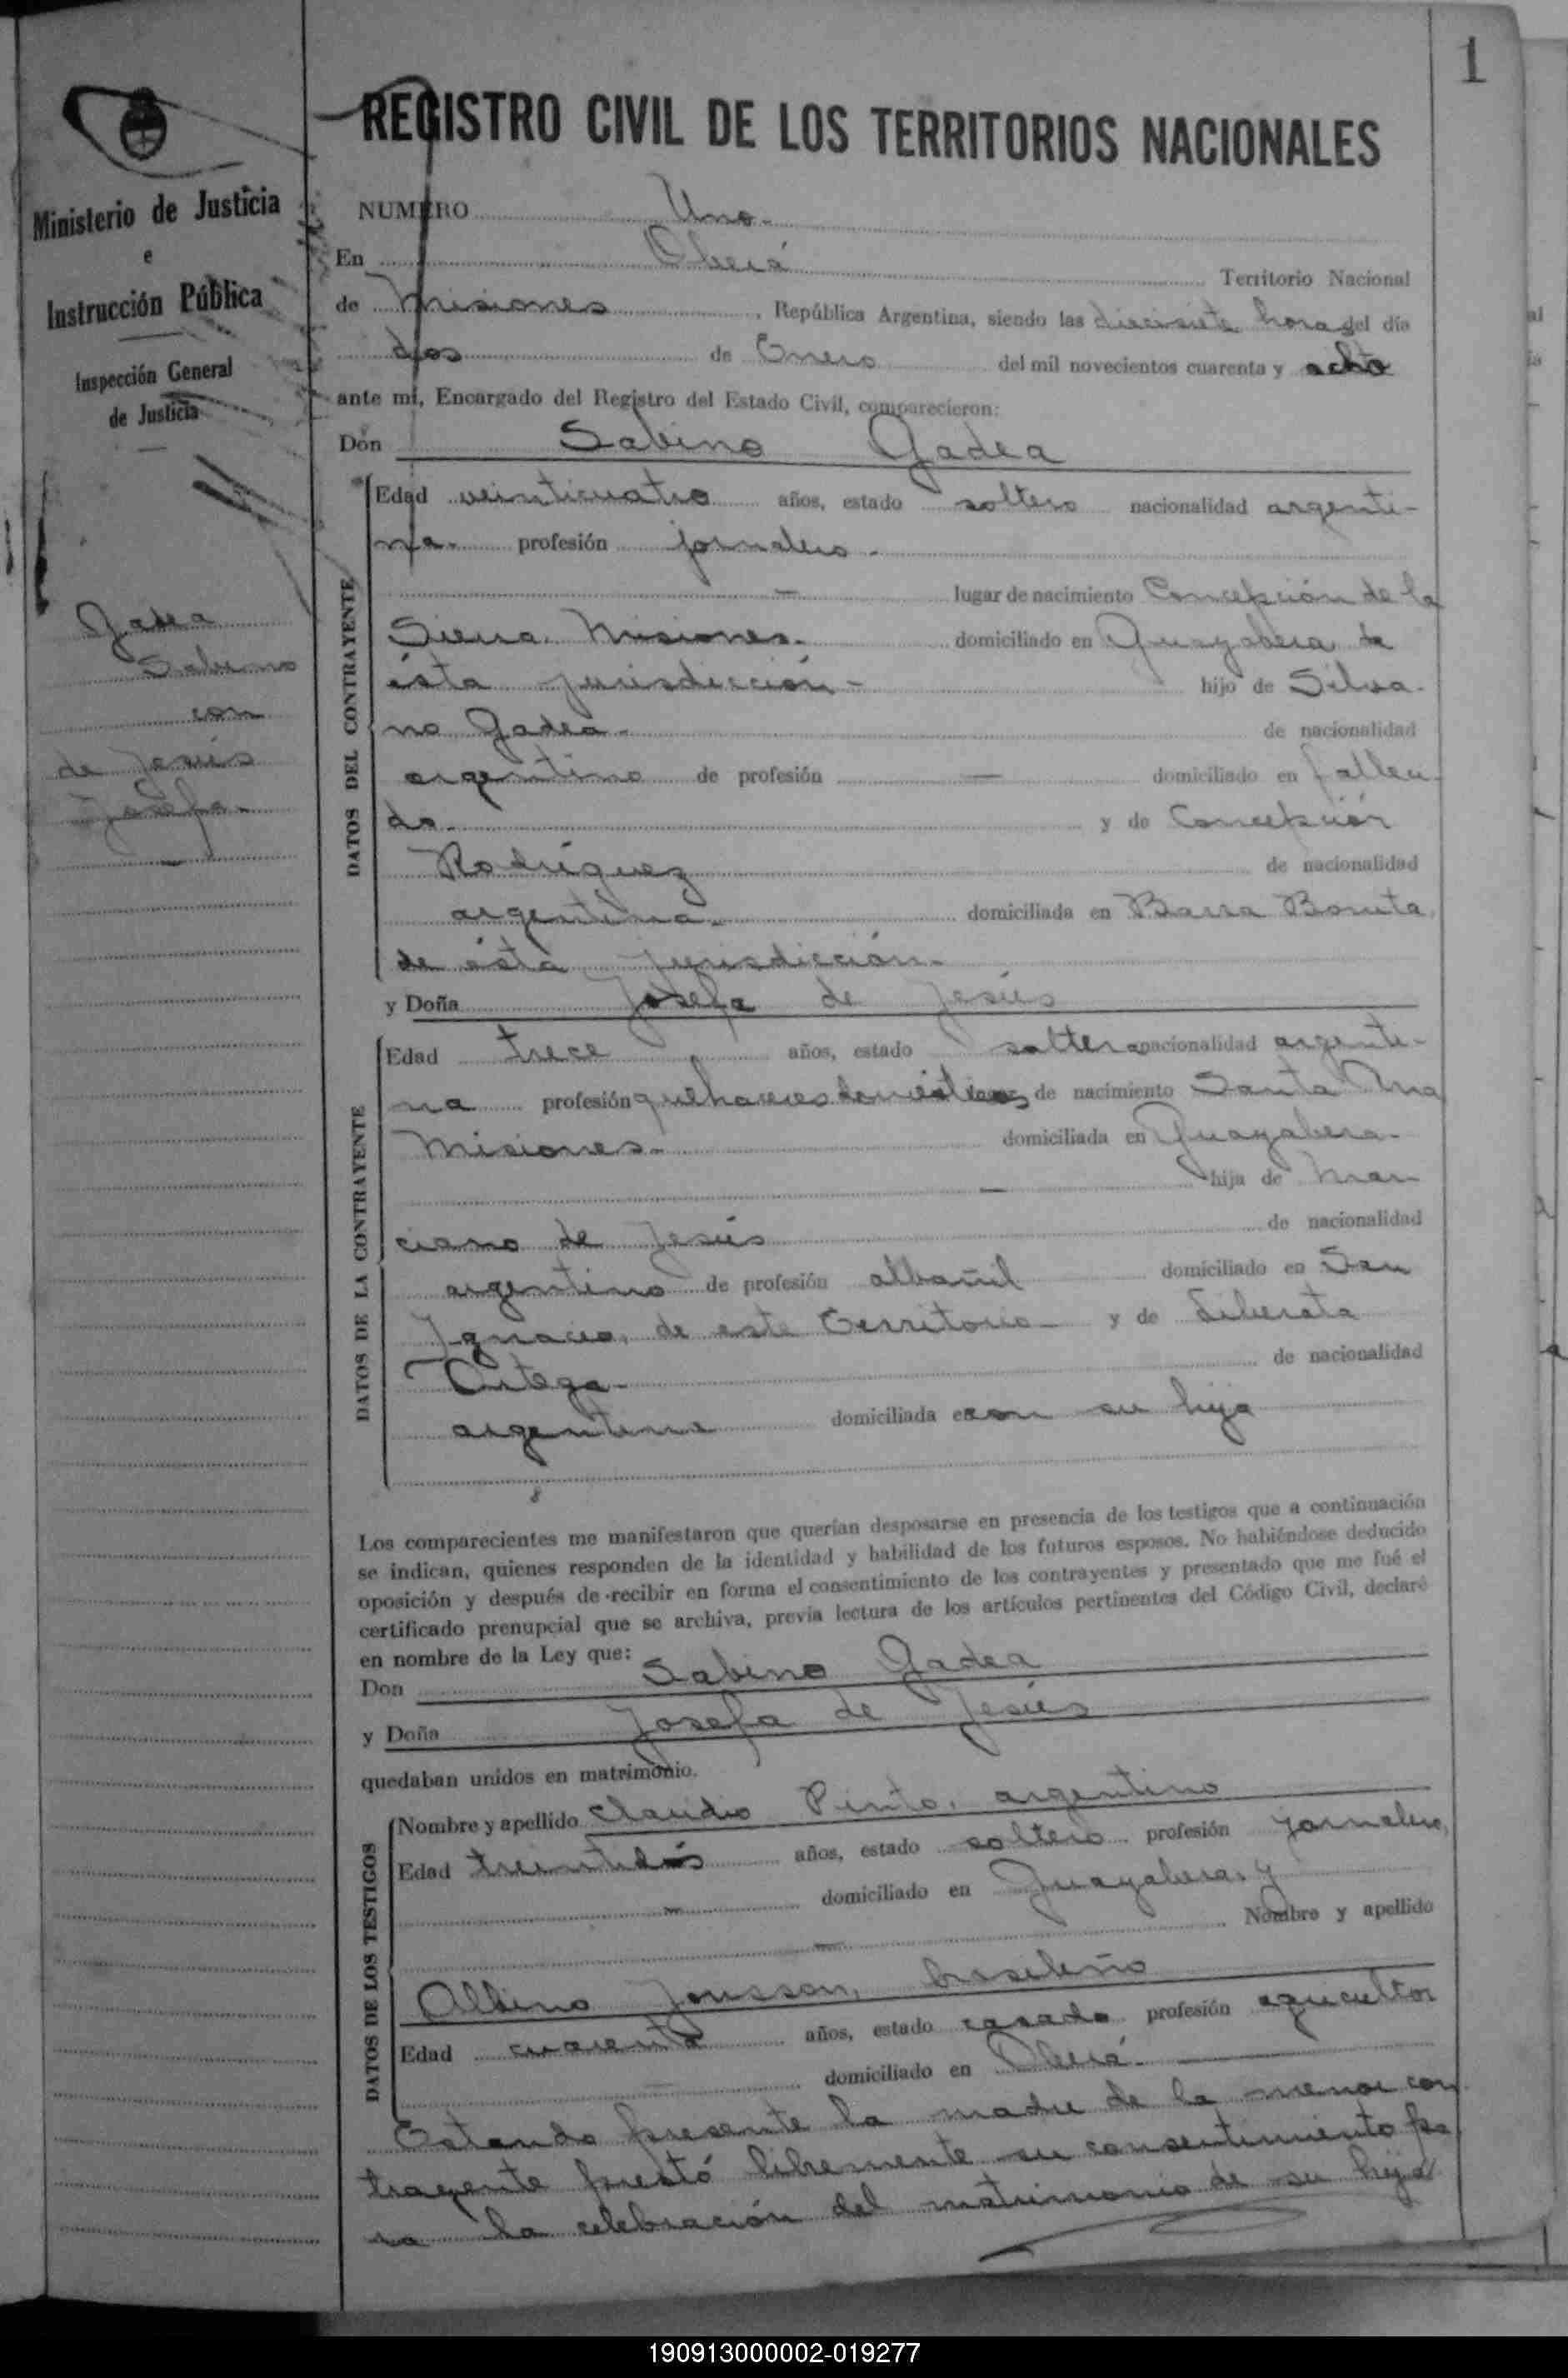 1
REGISTRO CIVIL DE LOS TERRITORIOS NACIONALES
Ministerio de Justicia
e
Instrucción Pública
Inspección General
de Justicia
Gadea
Sabino
con
de Jesús
Josefa.
NUMERO Uno.
En Oberá Territorio Nacional
de Misiones, República Argentina, siendo las diecisiete horas del día
dos de Enero del mil novecientos cuarenta y ocho
ante mí, Encargado del Registro del Estado Civil, comparecieron:
Don Sabino Gadea
DATOS DEL CONTRAYENTE
Edad veinticuatro años, estado soltero nacionalidad argenti-
na. profesión jornalero.
— lugar de nacimiento Concepción de la
Sierra, Misiones. domiciliado en Guayabera, de
ésta jurisdicción- hijo de Silva-
no Gadea. de nacionalidad
argentino de profesión — domiciliado en falleci-
do. y de Concepción
Rodríguez de nacionalidad
argentina. domiciliada en Barra Bonita,
de ésta jurisdicción.
y Doña Josefa de Jesús
DATOS DE LA CONTRAYENTE
Edad trece años, estado soltera nacionalidad argenti-
na profesión quehaceres domésticos de nacimiento Santa Ana
Misiones. domiciliada en Guayabera.
— hija de Mar
ciano de Jesús de nacionalidad
argentino de profesión albañil domiciliado en San
Ignacio, de este Territorio y de Liberata
Ortega. de nacionalidad
argentina domiciliada con su hija
Los comparecientes me manifestaron que querían desposarse en presencia de los testigos que a continuación
se indican, quienes responden de la identidad y habilidad de los futuros esposos. No habiéndose deducido
oposición y después de recibir en forma el consentimiento de los contrayentes y presentado que me fué el
certificado prenupcial que se archiva, previa lectura de los artículos pertinentes del Código Civil, declaré
en nombre de la Ley que:
Don Sabino Gadea
y Doña Josefa de Jesús
quedaban unidos en matrimonio.
DATOS DE LOS TESTIGOS
Nombre y apellido Claudio Pinto, argentino
Edad treintidós años, estado soltero profesión jornalero,
— domiciliado en Guayabera, y
— Nombre y apellido
Albino Jonsson, brasileño
Edad cuarenta años, estado casado profesión agricultor
domiciliado en Oberá.
Estando presente la madre de la menor con
trayente prestó libremente su consentimiento pa
ra la celebración del matrimonio de su hija
190913000002-019277